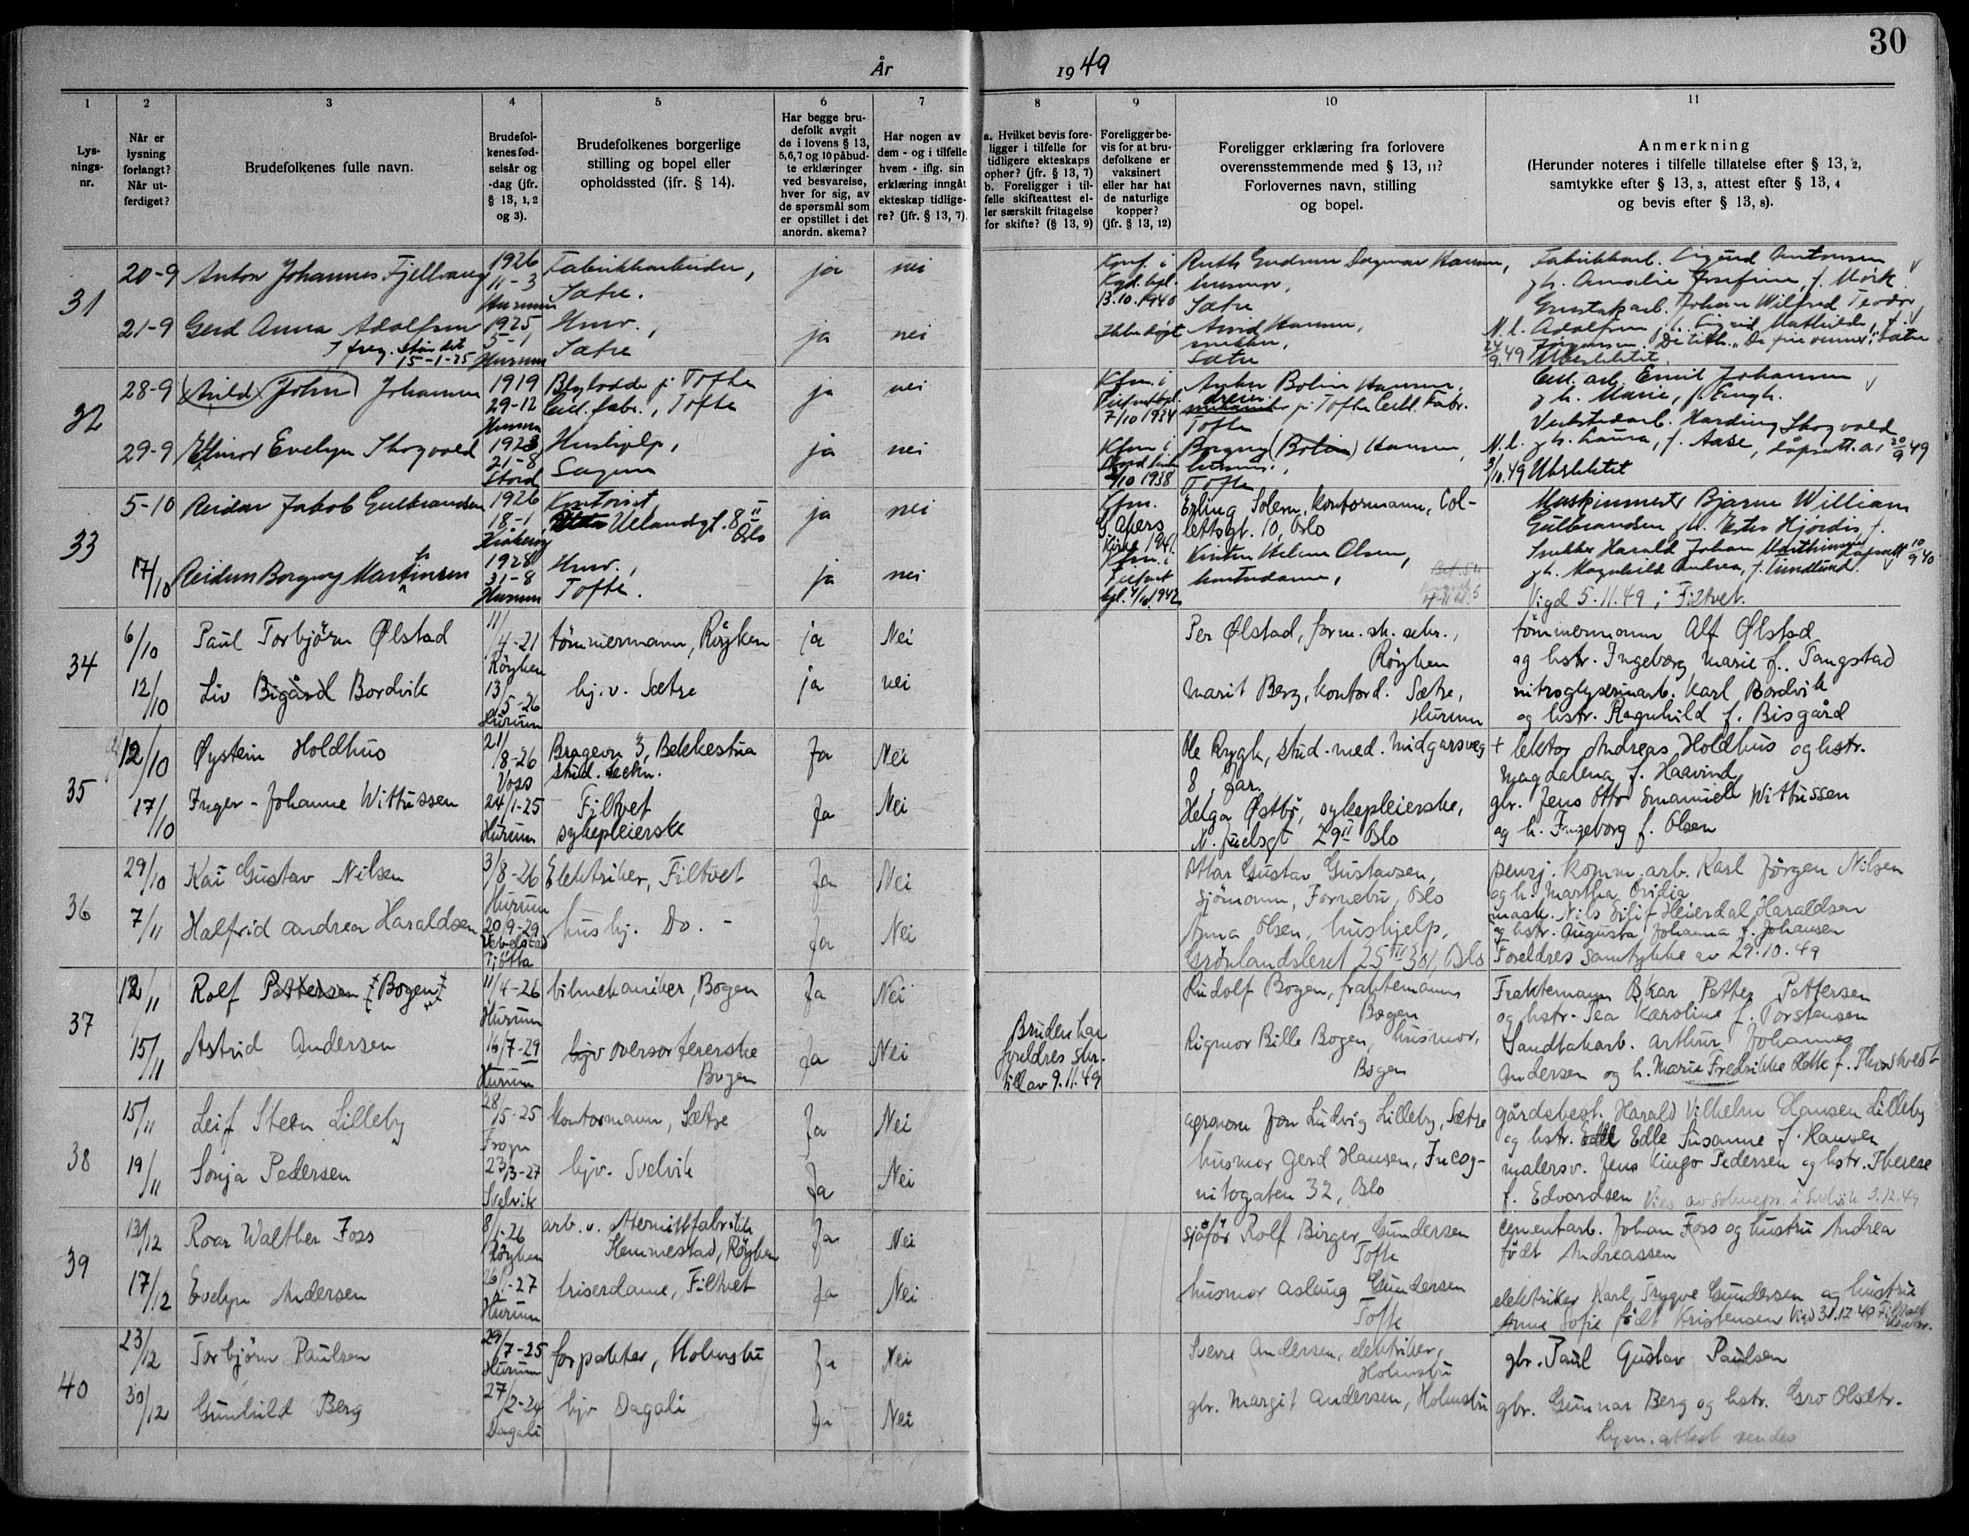 30
År 1949
1 2 3 4 5 6 7 8 9 10 11
Lys-
nings-
nr.
Når er
lysning
forlangt?
Når ut-
ferdiget?
Brudefolkenes fulle navn.
Brudefol-
kenes fød-
selsår og
-dag (jfr.
§ 13, 1, 2
og 3).
Brudefolkenes borgerlige
stilling og bopel eller
opholdssted (ifr. § 14).
Har begge bru-
defolk avgit
de i lovens § 13,
5,6,7 og 10 påbud-
te erklæringer
ved besvarelse,
hver for sig, av
de spørsmål som
er opstillet i det
anordn. skema?
Har nogen av
dem - og i tilfelle
hvem - iflg. sin
erklæring inngåt
ekteskap tidlige-
re? (jfr. § 13, 7).
a. Hvilket bevis fore-
ligger i tilfelle for
tidligere ekteskaps
ophør? (jfr. § 13, 7)
b. Foreligger i til-
felle skifteattest el-
ler særskilt fritagelse
for skifte? (§ 13, 9)
Foreligger be-
vis for at bru-
defolkene er
vaksinert
eller har hat
de naturlige
kopper?
(jfr. § 13, 12)
Foreligger erklæring fra forlovere
overensstemmende med § 13, 11?
Forlovernes navn, stilling
og bopel.
Anmerkning
(Herunder noteres i tilfelle tillatelse efter § 13, 2,
samtykke efter § 13, 3, attest efter § 13, 4
og bevis efter § 13, 8).
31
20-9 Anton Johannes Fjellvang 1926 11-3 Hurum Fabrikkarbeider, Sætre. ja nei
Konf. i Kgd. kpl. 13.10.1940 Ruth Gudrun Dagmar Hansen, husmor, Sætre
Fabrikkarb. Sigurd Antonsen
g.h. Amalie Josefine, f. Mørk.
21-9 Gerd Anna Adolfsen 1925 5-1 Hurum Husv., Sætre ja nei
15-1-25
Ikke døpt Arvid Hansen, snekker, Sætre
Grustakarb. Johan Wilfred Teodor
N.l. Adolfsen, Mathilde, f.
24/9.49 Jørgensen, Sætre
Ubeslektet.
32
28-9 (Arild) (John) Johansen 1919 29-12 Hurum Blylodde p. Tofte Cell. fabr., Tofte ja nei
Kfm. i 7/10 1934 Hansen, dreier p. Tofte Cell. Fabr. Tofte
Cell. arb. Emil Johansen
g.h. Marie, f. Engh.
29-9 Ellinor Evelyn Skogvold 1923 21-8 Stord Hushjelp, Sagene ja nei
Kfm. i 2/10 1938 Borgny (Bolin) Hansen, Tofte
Verkstedarb. Harding Skogvold
N.l. g.h. Laura, f. Aase, dåpsatt. av 20/9 49
3/10.49 Ubeslektet
33
5-10 Reidar Jakob Gulbrandsen 1926 18-1 Kontorist, Uelandsgt. 8 II Oslo ja nei
Kfm. Jakobs Kirke 1941 Erling Solem, kontormann, Col-
lettsgt. 10, Oslo
Maskinmester Bjarne William
Gulbrandsen g.h. Ester Hjørdis f.
17/10 Reidun Borgny Martinsen 1928 31-8 Hurum Husv., Tofte. ja nei
Kfm. i Filtvet kpl. 4/10 1942 Kirsten Helene Olsen, kontordame,
Snekker Harald Johan Marthinsen dåpsatt 10/9 40
g.h. Magnhild Andrea, f. Lundlund.
Vigd 5.11.49 i Filtvet.
34
6/10 Paul Torbjörn Ølstad 11/4-21 Röyken tömmermann, Röyken ja Nei
Per Ølstad, form. sk. sekr., Röyken
tömmermann Alf Ølstad
og hstr. Ingeborg Marie f. Tangstad
12/10 Liv Bigård Bordvik 13/5-26 Hurum hj.v. Sætre ja nei
Marit Berg, kontord. Sætre, Hurum
nitroglyserinarb. Karl Bordvik
og hstr. Ragnhild f. Bisgård
35
12/10 Øystein Holdhus 21/8-26 Voss Bragevn 3, Bekkestua stud. techn. Ja Nei
Ole Rygh, stud. med. Midgarsveg
8, Jar.
+ lektor Andreas Holdhus og hstr.
Magdalena f. Haavind
17/10 Inger-Johanne Wittussen 24/1-25 Hurum Filtvet sykepleierske Ja Nei
Helga Østbö, sykepleierske,
N. Juelsgt 29 II Oslo
gbr. Jens Otto Emanuel Wittussen
og h. Ingeborg f. Olsen
36
29/10 Kai Gustav Nilsen 3/8-26 Hurum Elektriker, Filtvet Ja Nei
Ottar Gustav Gustavsen,
sjömann, Fornebu, Oslo
pensj. komm. arb. Karl Jörgen Nilsen
og h. Martha Ovidia
7/11 Halfrid Andrea Haraldsen 20/9-29 Vevelstad Tjötta hushj. Do. - Ja Nei
Anna Olsen, hushjelp,
Grönlandsleret 25 III 301, Oslo
mask. Nils Eilif Heierdal Haraldsen
og hstr. Augusta Johanna f. Johansen
Foreldres samtykke av 29.10.49
37
12/11 Rolf Pettersen (Bogen) 11/4-26 Hurum bilmekaniker, Bogen Ja Nei
Rudolf Bogen, fraktemann, Bogen
Fraktemann Oskar Petter Pettersen
og hstr. Tea Karoline f. Torstensen
15/11 Astrid Andersen 16/7-29 Hurum hjv oversortererske Bogen Ja Nei
Bruden har foreldres skr. till av 9.11.49
Rigmor Bille Bogen, husmor, Bogen
Sandtakarb. Arthur Johannes
Andersen og h. Marie Fredrikke Hette f. Thorskvedt
38
15/11 Leif Steen Lilleby 28/5-25 Frogn kontormann, Sætre Ja Nei
agronom Jon Ludvig Lilleby, Sætre
gårdsbest. Harald Vilhelm Hansen Lilleby
og hstr. Edle Susanne f. Hansen
19/11 Sonja Pedersen 23/3-27 Svelvik hjv. Svelvik Ja Nei
husmor Gerd Hansen, Incog-
nitogaten 32, Oslo
malersv. Jens Kingo Pedersen og hstr. Therese
f. Edvardsen Vies av sokneprest i Svelvik 3.12.49
39
13/12 Roar Walther Foss 8/1-26 Röyken arb. v. Eternittfabrikk Slemmestad, Röyken Ja Nei
sjåför Rolf Birger Gundersen Tofte
cementarb. Johan Foss og hustru Andrea
født Andreassen
17/12 Evelyn Andersen 26/1-27 Hurum friserdame, Filtvet Ja Nei
husmor Aslaug Gundersen Tofte
elektriker Karl Trygve Gundersen og hustru
Anna Sofie født Kristensen Vigd 31.12.49 Filtvet
40
23/12 Torbjörn Paulsen 29/7-25 Hurum forpakter, Holmsbu Ja Nei
Sverre Andersen, elektriker, Holmsbu
gbr. Paul Gustav Paulsen
30/12 Gunhild Berg 27/2-24 Dagali hjv Dagali Ja Nei
gbr. Margit Andersen, Holmsbu
gbr. Gunnar Berg og hstr. Gro Olsdtr.
Lysn. attest sendes